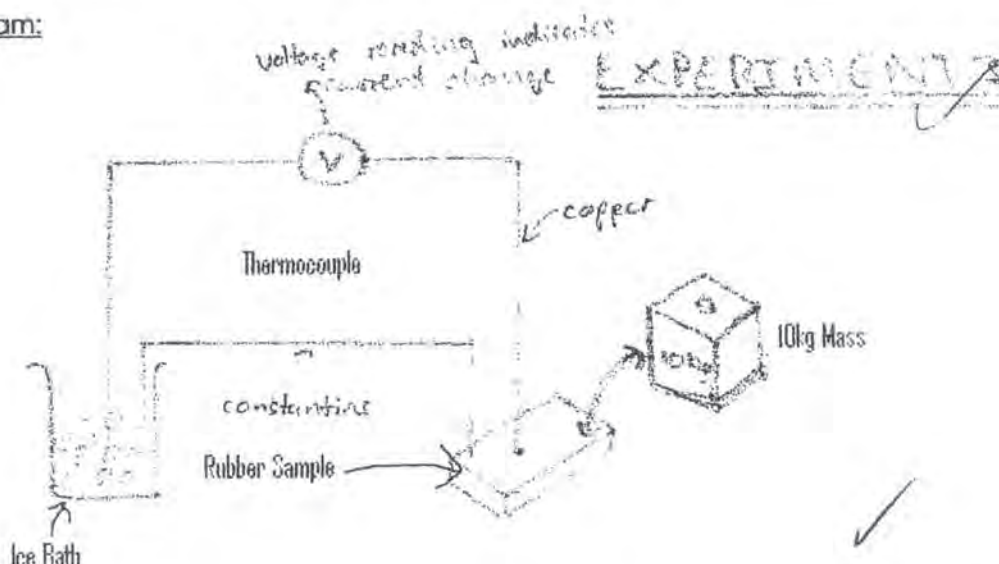 am:
voltage reading indicates
current change
EXPERIMENT
V
copper
Thermocouple
10kg Mass
10kg
constantine
Rubber Sample
Ice Bath